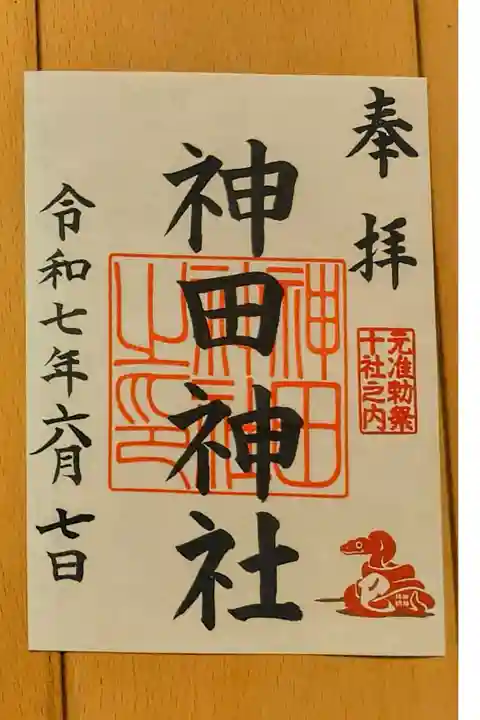 奉拝
元准勅祭
十社之内
神田神社
神田
神社
之印
令和七年六月七日